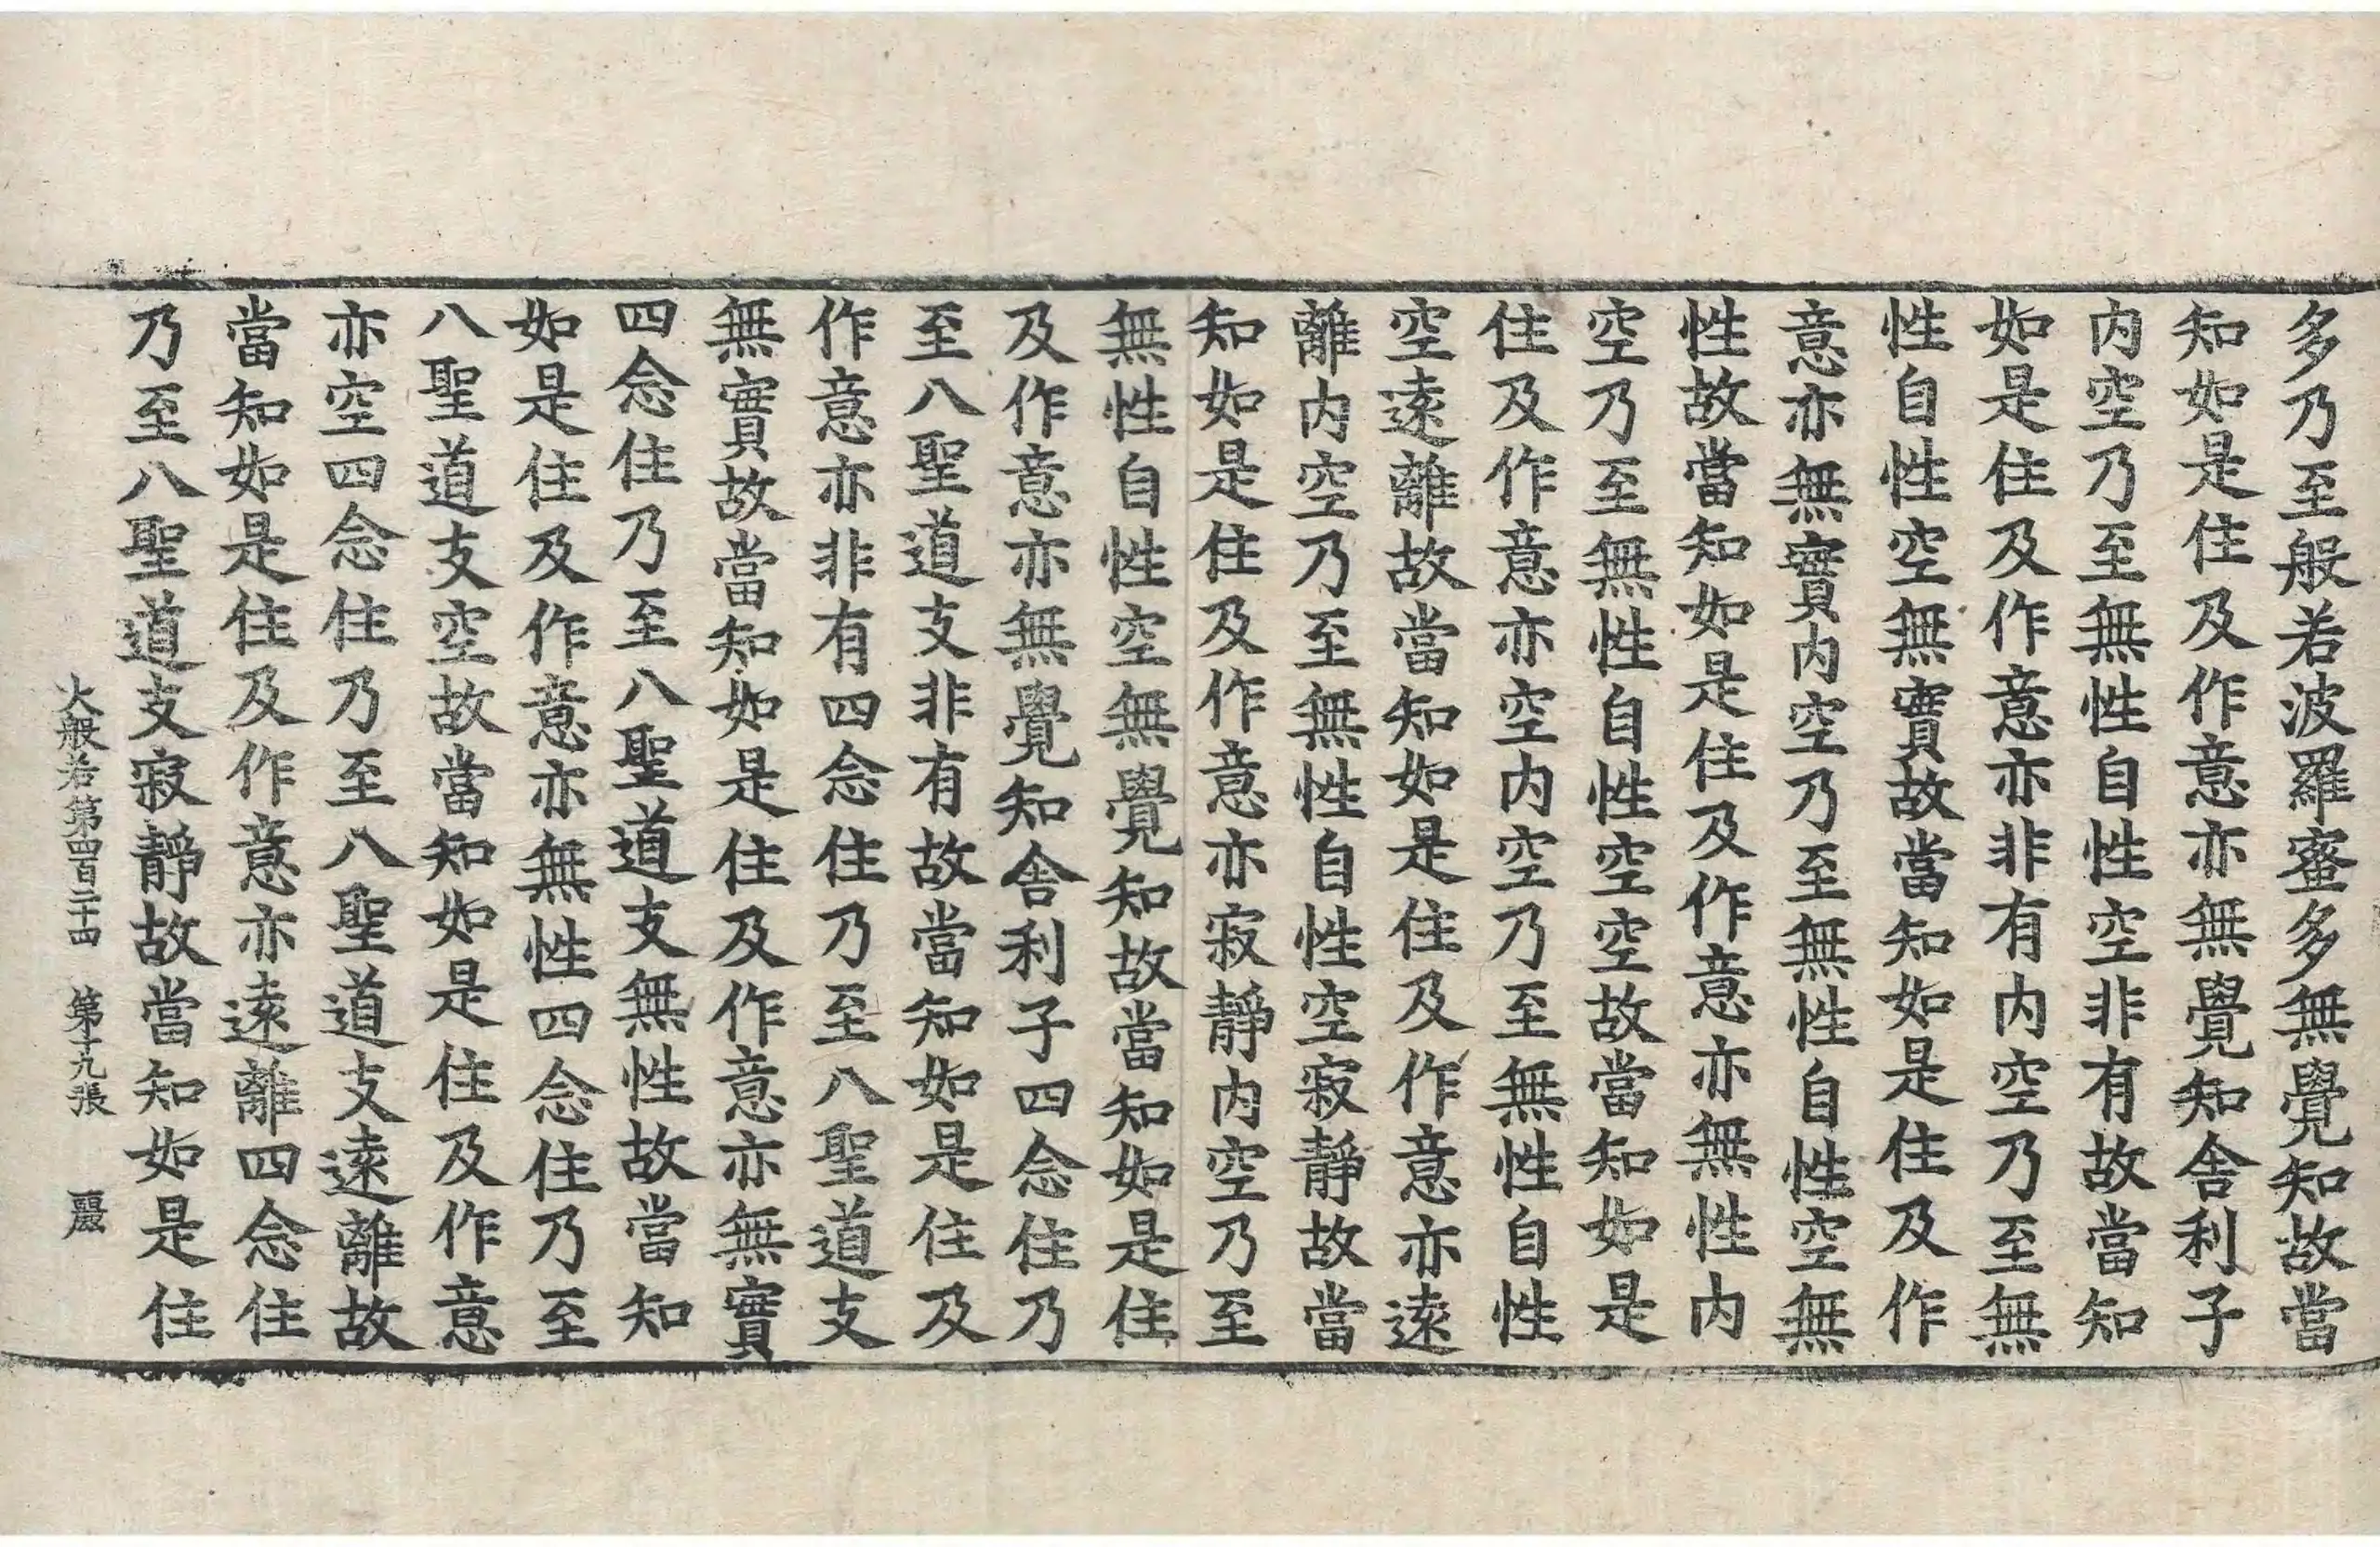 多乃至般若波羅蜜多無覺知故當
知如是住及作意亦無覺知舍利子
内空乃至無性自性空非有故當知
如是住及作意亦非有内空乃至無
性自性空無實故當知如是住及作
意亦無實内空乃至無性自性空無
性故當知如是住及作意亦無性内
空乃至無性自性空空故當知如是
住及作意亦空内空乃至無性自性
空逺離故當知如是住及作意亦逺
離内空乃至無性自性空寂靜故當
知如是住及作意亦寂靜内空乃至
無性自性空無覺知故當知如是住
及作意亦無覺知舍利子四念住乃
至八聖道支非有故當知如是住及
作意亦非有四念住乃至八聖道支
無實故當知如是住及作意亦無實
四念住乃至八聖道支無性故當知
如是住及作意亦無性四念住乃至
八聖道支空故當知如是住及作意
亦空四念住乃至八聖道支逺離故
當知如是住及作意亦逺離四念住
乃至八聖道支寂靜故當知如是住
大般若第四百二十四 第十九張